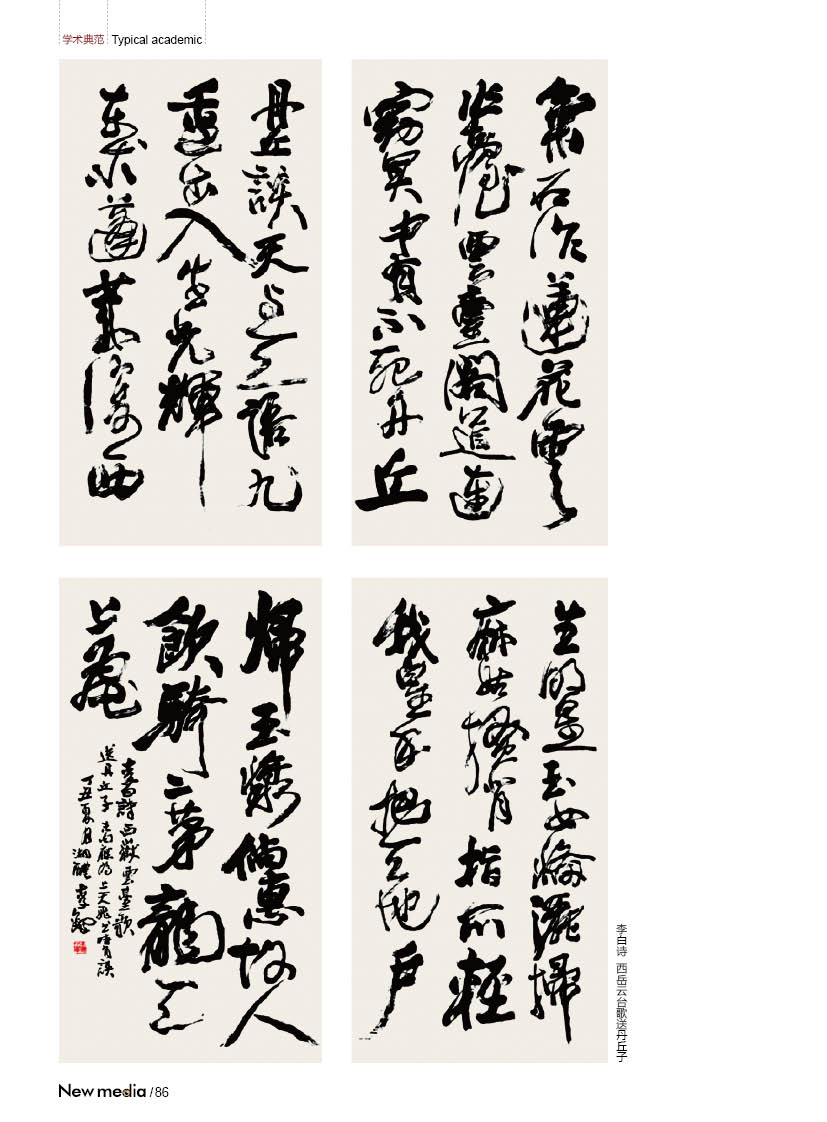 学术典范 Typical academic
氣石作蓮花雲
作臺雲臺閣道連
窈冥中有不死丹丘
生明星玉女備灑掃
麻姑搔背指爪輕
我皇手把天地戶
丹丘談天與天語九
重出入生光輝
東來蓬萊復西
歸玉漿倘惠故人
飲騎二茅龍天
上飛
李白詩西嶽雲臺歌
送丹丘子 應為上天飛 誤
丁丑夏月湖醴李鐸
李白诗 西岳云台歌送丹丘子
New media / 86